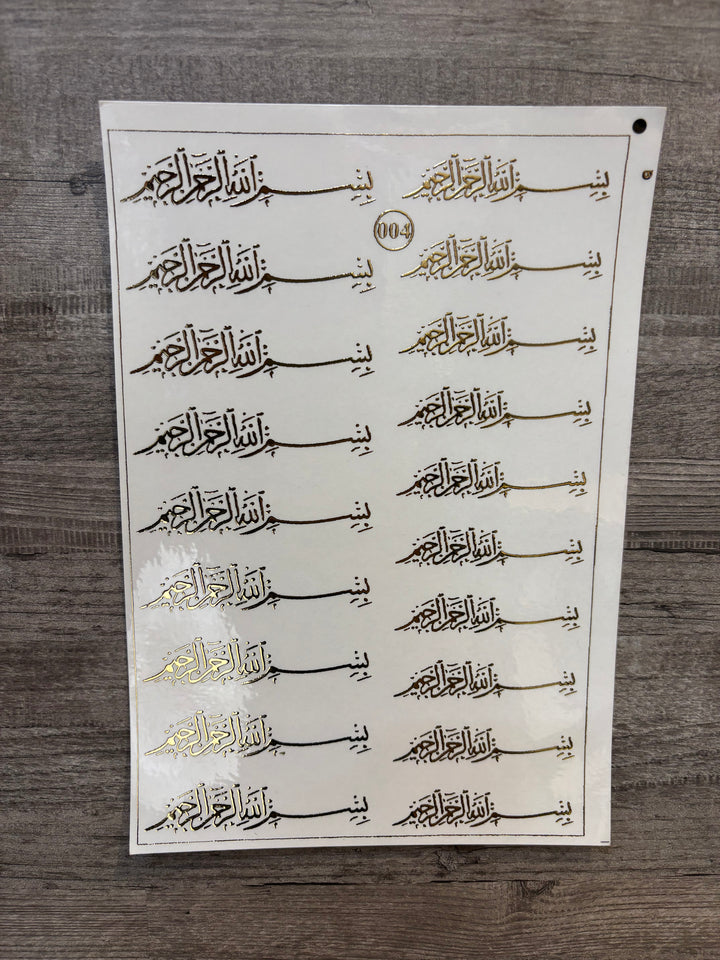 بِسْمِ اللهِ الرَّحْمٰنِ الرَّحِيمِ
بِسْمِ اللهِ الرَّحْمٰنِ الرَّحِيمِ
بِسْمِ اللهِ الرَّحْمٰنِ الرَّحِيمِ
بِسْمِ اللهِ الرَّحْمٰنِ الرَّحِيمِ
بِسْمِ اللهِ الرَّحْمٰنِ الرَّحِيمِ
بِسْمِ اللهِ الرَّحْمٰنِ الرَّحِيمِ
بِسْمِ اللهِ الرَّحْمٰنِ الرَّحِيمِ
بِسْمِ اللهِ الرَّحْمٰنِ الرَّحِيمِ
بِسْمِ اللهِ الرَّحْمٰنِ الرَّحِيمِ
بِسْمِ اللهِ الرَّحْمٰنِ الرَّحِيمِ
004
بِسْمِ اللهِ الرَّحْمٰنِ الرَّحِيمِ
بِسْمِ اللهِ الرَّحْمٰنِ الرَّحِيمِ
بِسْمِ اللهِ الرَّحْمٰنِ الرَّحِيمِ
بِسْمِ اللهِ الرَّحْمٰنِ الرَّحِيمِ
بِسْمِ اللهِ الرَّحْمٰنِ الرَّحِيمِ
بِسْمِ اللهِ الرَّحْمٰنِ الرَّحِيمِ
بِسْمِ اللهِ الرَّحْمٰنِ الرَّحِيمِ
بِسْمِ اللهِ الرَّحْمٰنِ الرَّحِيمِ
بِسْمِ اللهِ الرَّحْمٰنِ الرَّحِيمِ